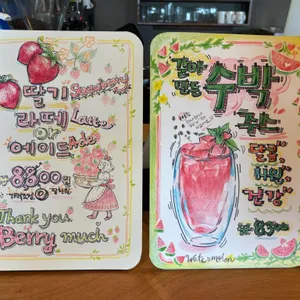 딸기 Strawberry
라떼 Latte
or
에이드 Ade
₩8800원
Thank you
Berry much
갈아
만든
수박
쥬스
"달콤,
시원,
건강"
water melon